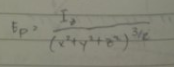 Ep = I₂ / (x² + y² + z²)^3/2